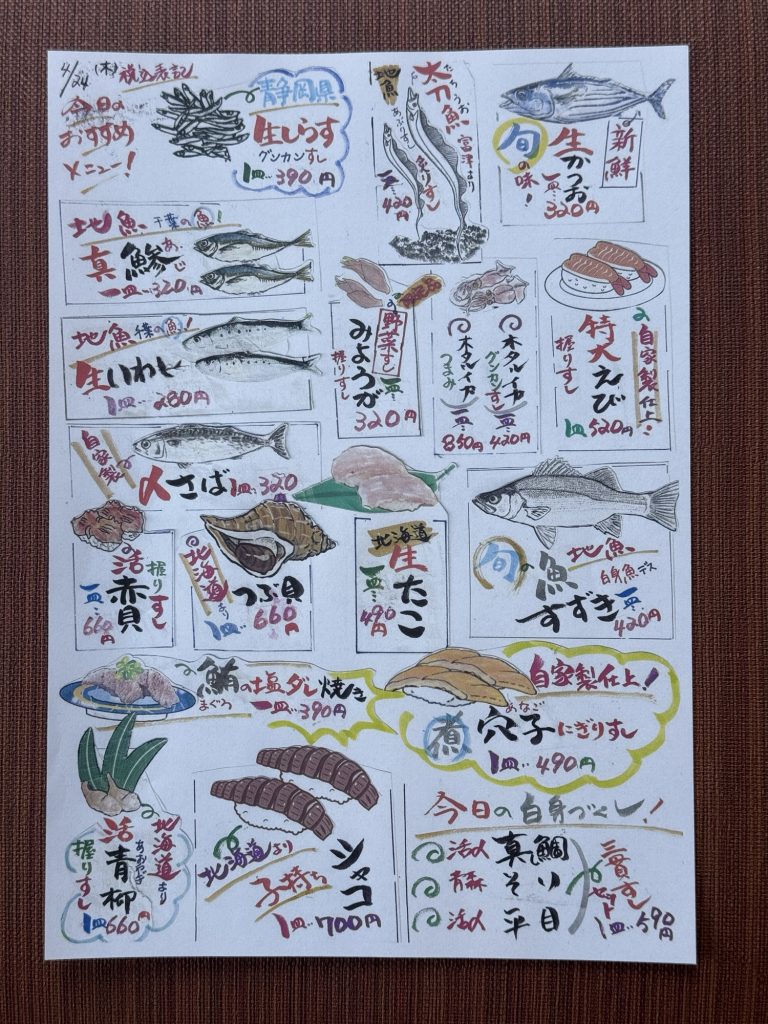 4/24 (木) 税込表記
今日の
おすすめ
メニュー!
静岡県
生しらす
グンカンすし
1皿… 390円
地魚
太刀魚
たちうお
富津より
あぶりすし
炙りすし
一皿… 420円
新鮮
生かつお
旬の味!
一皿… 320円
地魚 千葉の魚!
真鯵
あじ
一皿… 320円
地魚 千葉の魚!
生いわし
1皿… 280円
自家製
〆さば 1皿… 320円
野菜すし
みょうが
握りすし
一皿…
320円
ホタルイカ
グンカンすし
一皿… 420円
ホタルイカ
つまみ
一皿… 850円
自家製仕上!
特大えび
握りすし
1皿 520円
握りすし
活赤貝
一皿… 660円
北海道より
つぶ貝
1皿… 660円
北海道
生たこ
一皿… 490円
旬の魚
地魚
白身魚デス
すずき
一皿… 420円
鮪の塩ダレ焼き
まぐろ
一皿… 390円
自家製仕上!
煮穴子にぎりすし
あなご
1皿… 490円
北海道より
活青柳
あおやぎ
握りすし
1皿 660円
北海道より
子持ち
シャコ
1皿… 700円
今日の白身づくし!
活〆 真鯛
青森 そい
活〆 平目
三貫すし
セット
1皿… 590円